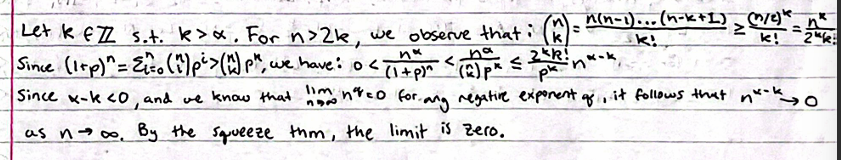 Let k ∈ ℤ s.t. k > α. For n>2k, we observe that: (n k) = n(n-1)...(n-k+1)/k! ≥ (n/2)^k/k! = n^k/2^k k!
Since (1+p)^n = Σ_{i=0}^n (n i) p^i > (n k) p^k, we have: 0 < n^α/(1+p)^n < n^α/((n k) p^k) ≤ 2^k k!/p^k n^{α-k}
Since α-k<0, and we know that lim_{n→∞} n^q = 0 for any negative exponent q, it follows that n^{α-k} → 0
as n → ∞. By the squeeze thm, the limit is zero.